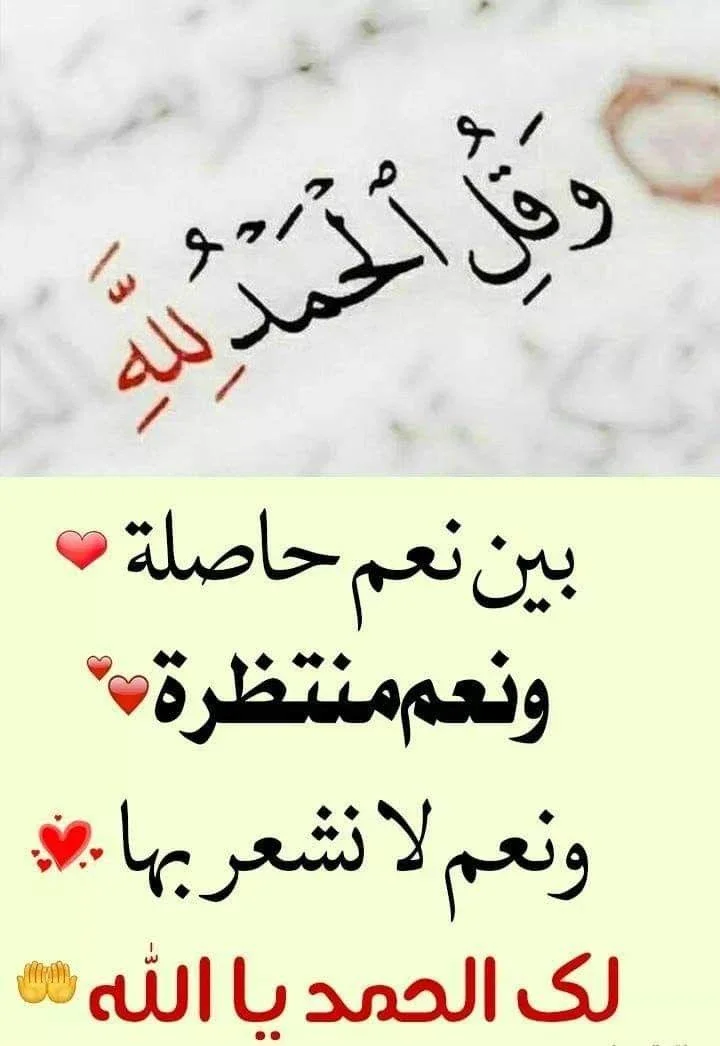 وَقُلِ ٱلْحَمْدُ لِلَّهِ
بين نعم حاصلة ❤
ونعم منتظرة 💕
ونعم لا نشعر بها 💞
لك الحمد يا الله 🤲